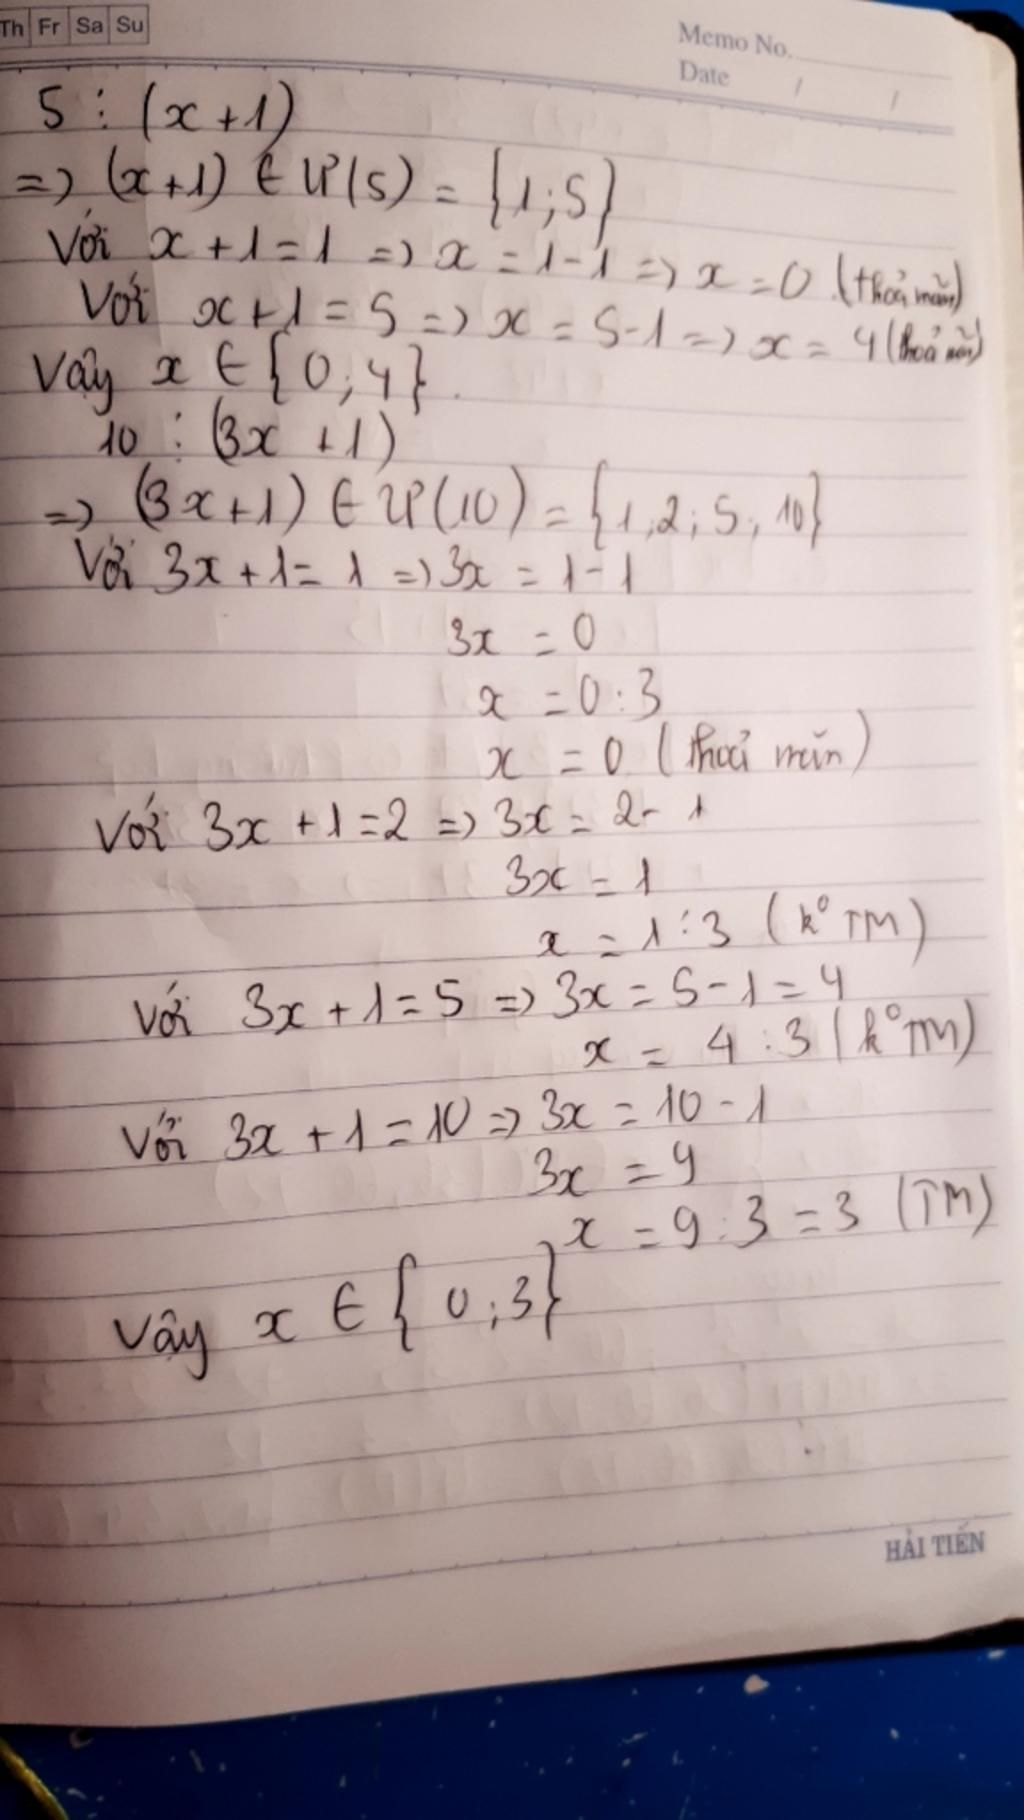 Th Fr Sa Su
Memo No.
Date / /
5 ⋮ (x+1)
=> (x+1) ∈ Ư(5) = {1;5}
Với x+1=1 => x = 1-1 => x = 0 (thoả mãn)
Với x+1 = 5 => x = 5-1 => x = 4 (thoả mãn)
Vậy x ∈ {0;4}.
10 ⋮ (3x +1)
=> (3x+1) ∈ Ư(10) = {1;2;5;10}
Với 3x+1= 1 => 3x = 1-1
3x = 0
x = 0:3
x = 0 (thoả mãn)
Với 3x +1=2 => 3x = 2- 1
3x = 1
x = 1:3 (k° TM)
Với 3x +1=5 => 3x = 5-1=4
x = 4:3 (k° TM)
Với 3x +1=10 => 3x = 10-1
3x = 9
x = 9:3 = 3 (TM)
Vậy x ∈ {0;3}
HẢI TIẾN